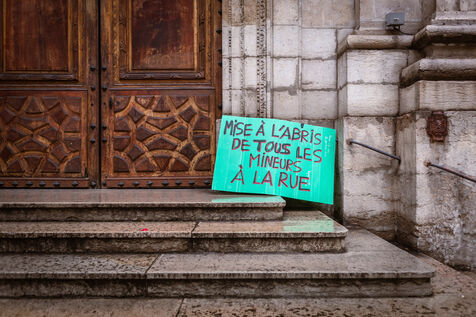 MISE À L'ABRIS
DE TOUS LES
MINEURS
À LA RUE